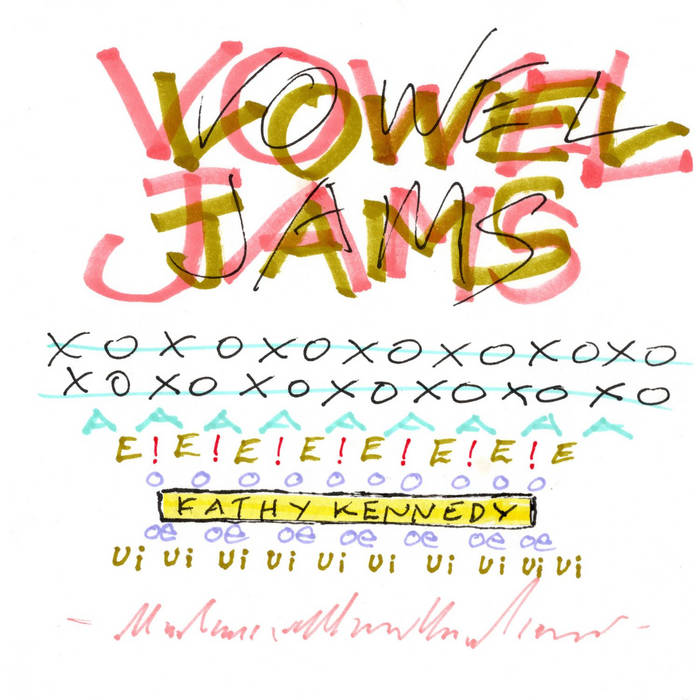 VOWEL
JAMS
X O X O X O X O X O X O X O
X O X O X O X O X O X O X O
A A A A A A A A A
E ! E ! E ! E ! E ! E ! E ! E
o o o o o o o o o o
KATHY KENNEDY
oe oe oe oe oe oe oe
Ui Ui Ui Ui Ui Ui Ui Ui Ui Ui